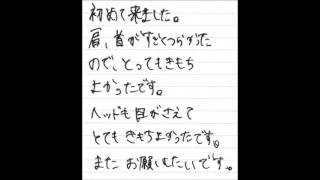 初めて来ました。
肩、首がすごくつらかった
ので、とってもきもち
よかったです。
ヘッドも目がさえて
とてもきもちよかったです。
またお願いしたいです。